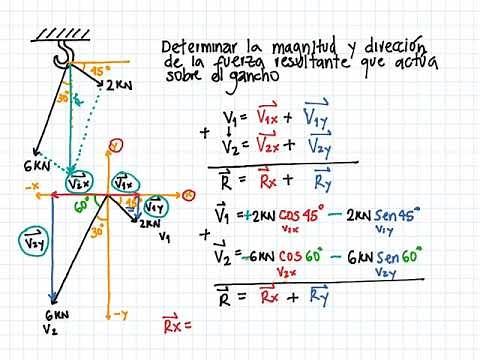 Determinar la magnitud y dirección
de la fuerza resultante que actúa
sobre el gancho
45°
2KN
30°
R
6KN
V1 = V1x + V1y
+
V2 = V2x + V2y
R = Rx + Ry
y
V2x V1x
-x x
60° 45°
V1y
2KN
V1
30°
V2y
6KN
V2
-y
V1 = +2KN cos45° - 2KN Sen45°
V1x V1y
+
V2 = -6KN cos60° - 6KN Sen60°
V2x V2y
R = Rx + Ry
Rx =